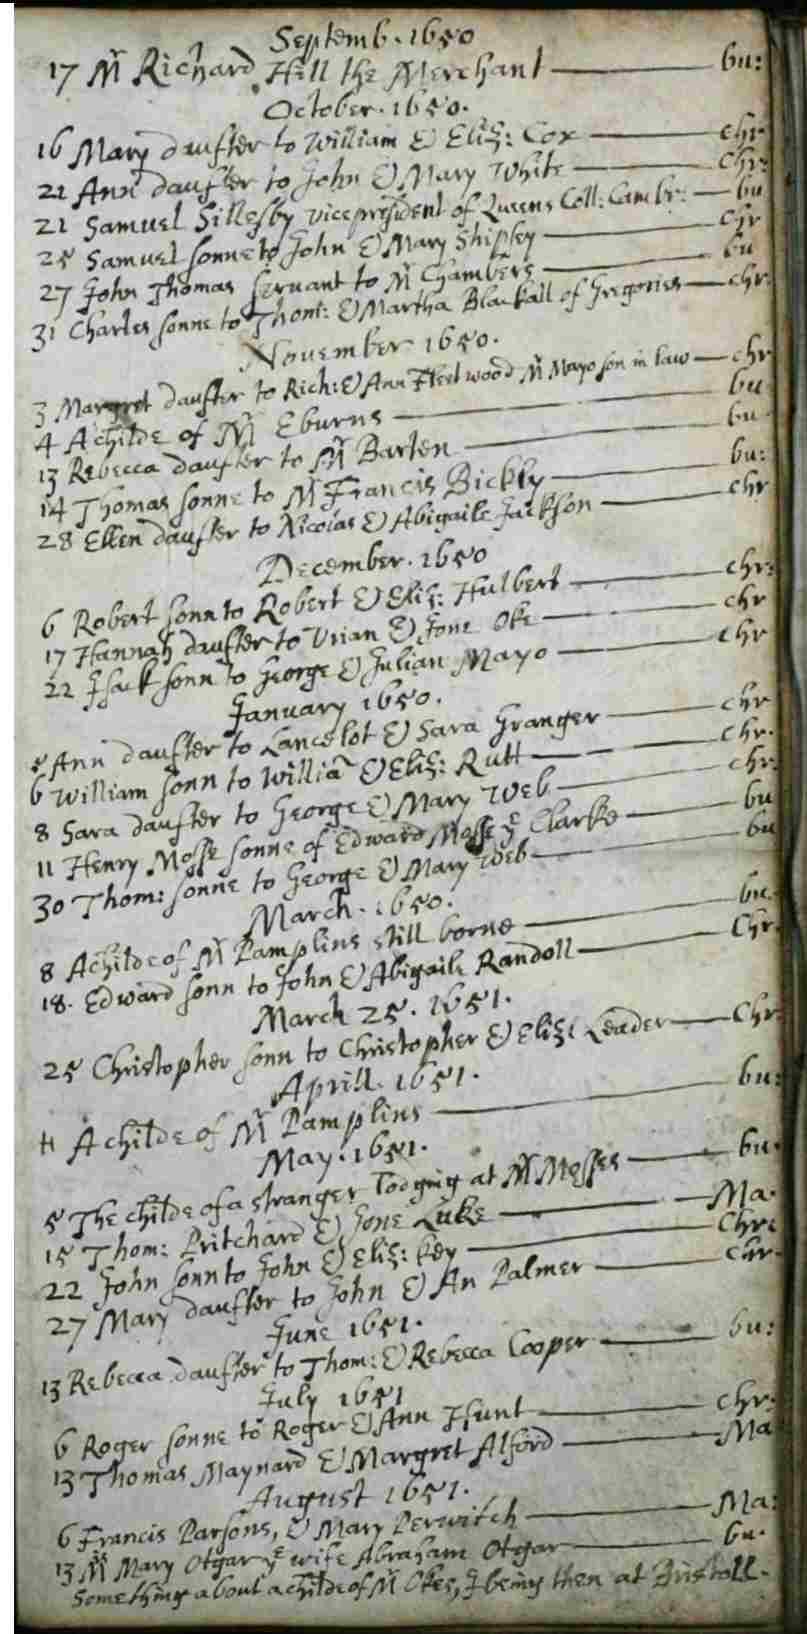 Septemb. 1650
17 Mr Richard Hill the Merchant — bu:
October. 1650.
16 Mary daufter to William & Eliz: Cox — chr
21 Ann daufter to John & Mary White — Chr:
21 Samuel Sillesby vicepresident of Queens Coll: Cambr: — bu
25 Samuel sonne to John & Mary Shipley — chr
27 John Thomas servant to Mr Chambers — bu
31 Charles sonne to Thom: & Martha Blackall of Gregories — chr.
November 1650.
3 Margret daufter to Rich: & Ann Fleetwood Mr Mayo son in law — chr
4 A childe of Mr Eburns — bu
13 Rebecca daufter to Mr Barten — bu
14 Thomas sonne to Mr Francis Bickly — bu:
28 Ellen daufter to Nicolas & Abigaile Jackson — chr
December. 1650
6 Robert sonn to Robert & Eliz: Hulbert — chr:
17 Hannah daufter to Urian & Jone Oke — chr
22 Isack sonn to George & Julian Mayo — chr
January 1650.
5 Ann daufter to Lancelot & Sara Granger — chr
6 William sonn to Williã & Eliz: Rutt — chr.
8 Sara daufter to George & Mary Web — chr.
11 Henry Mosse sonne of Edward Mosse ye Clarke — bu
30 Thom: sonne to George & Mary Web — bu
March. 1650.
8 A childe of Mr Pamplins still borne — bu.
18. Edward sonn to John & Abigaile Randoll — Chr.
March 25. 1651.
25 Christopher sonn to Christopher & Eliz: Leader — Chr
Aprill. 1651.
A childe of Mr Pamplins — bu:
May. 1651.
5 The childe of a stranger lodging at Mr Mosses — bu.
15 Thom: Pritchard & Jone Luke — Ma.
22 John sonn to John & Eliz: Key — Chr:
27 Mary daufter to John & An Palmer — chr.
June 1651.
13 Rebecca daufter to Thom: & Rebecca Cooper — bu:
July 1651
6 Roger sonne to Roger & Ann Hunt — chr:
13 Thomas Maynard & Margret Alford — Ma
August 1651.
6 Francis Parsons, & Mary Perwitch — Ma:
13 Mrs Mary Otgar ye wife Abraham Otgar — bu.
Something about a childe of Mr Okes, I being then at Bristoll.